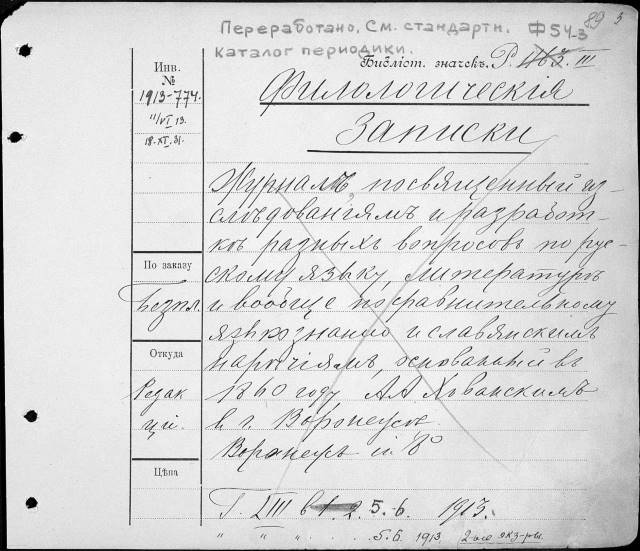 Переработано. См. стандартн. Ф54-3
каталог периодики.
89
Библіот. значекъ. Р. 463. III
Инв.
№
1913-774.
11/VI 13.
18.XI.31.
Филологическія
Записки
Журналъ, посвященный из-
слѣдованіямъ и разработ-
кѣ разныхъ вопросовъ по рус-
скому языку, литературѣ
и вообще по сравнительному
языкознанію и славянскимъ
нарѣчіямъ, основанный въ
1860 году А.А. Хованскимъ
въ г. Воронежѣ.
Воронежъ in 8°
По заказу
Безпл.
Откуда
Редак
ціи.
Цѣна
Г. LIII в. 1. 2. 5.-6. 1913.
" " " . . . . . 5.6. 1913 2-ые экз-ры.